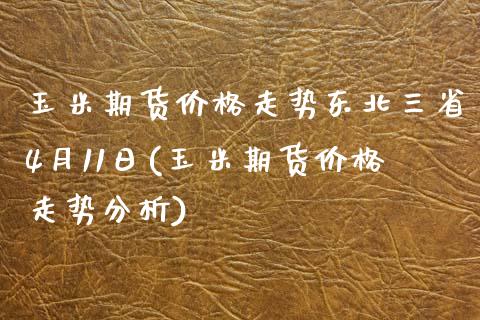 玉米期货价格走势东北三省
4月11日(玉米期货价格
走势分析)